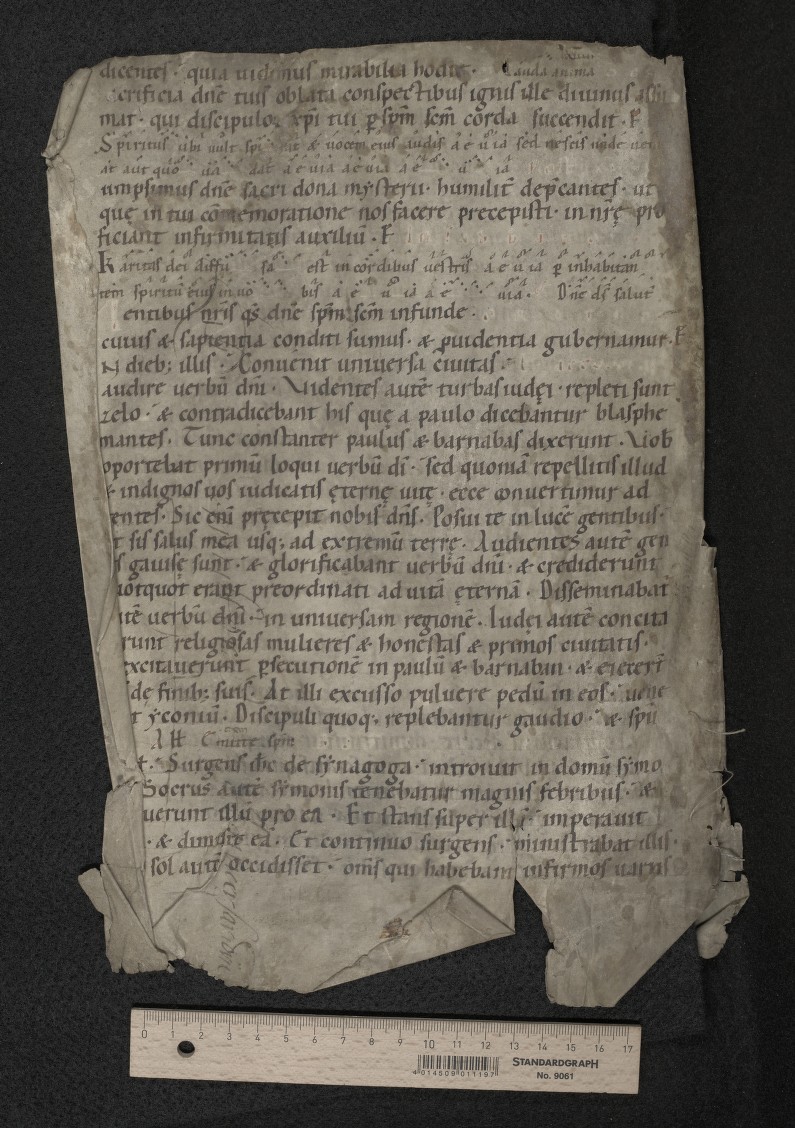 dicentes · quia uidimus mirabilia hodie · Lauda anima
crificia dn̄e tuis oblata conspectibus ignis ille diuinus
mat · qui discipuloꝝ xp̄i tui ꝑ sp̄m scm̄ corda succendit · P
Spiritus ubi uult spi rat & uocem eius audis a e u ia sed nescis unde
at aut quo ua dat a e u ia a e u ia a e u ia
umpsimus dn̄e sacri dona mysterii · humilit̄ dep̄cantes · ut
quę in tui cōmemoratione nos facere precepisti · in nr̄ę pro
ficiant infirmitatis auxiliū · P
Karitas dei diffu sa est in cordibus uestris a e u ia ꝑ inhabitan
tem spiritū eius in uo bis a e u ia a e uia · Dn̄e ds̄ salut
entibus nr̄is qs̄ dn̄e sp̄m scm̄ infunde ·
cuius & sapientia conditi sumus · & ꝓuidentia gubernamur · P
N dieb; illis · Conuenit uniuersa ciuitas ·
audire uerbū dn̄i · Videntes autē turbas iudęi · repleti sunt
zelo · & contradicebant his quę a paulo dicebantur blasphe
mantes · Tunc constanter paulus & barnabas dixerunt · Uob
oportebat primū loqui uerbū dī · sed quoniā repellitis illud
& indignos uos iudicatis ęternę uitę · ecce conuertimur ad
entes · Sic enī pręcepit nobis dn̄s · Posui te in lucē gentibus ·
t sis salus mea usq; ad extremū terrę · Audientes autē gen
s gauisę sunt · & glorificabant uerbū dn̄i · & crediderunt
uotquot erant preordinati ad uitā ęternā · Disseminabat
tē uerbū dn̄i · in uniuersam regionē · Iudei autē concita
runt religiosas mulieres & honestas & primos ciuitatis ·
xcitauerunt ꝑsecutionē in paulū & barnaban · & eiecert̄
de finib; suis · At illi excusso puluere pedū in eos · uene
t yconiū · Discipuli quoq; replebantur gaudio · & spū
All Emitte sp̄m
Surgens ih̄c de synagoga · introiuit in domū symo
Socrus autē symonis tenebatur magnis febribus · &
uerunt illū pro ea · Et stans super illā · imperauit
· & dimisit eā · Et continuo surgens · ministrabat illis ·
sol autē occidisset · om̄s qui habebant infirmos uariis